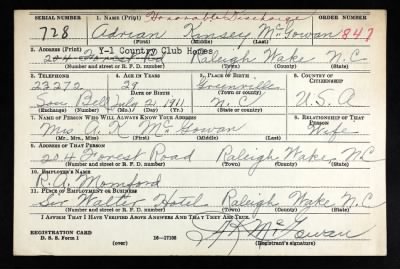 Honorable Discharge
SERIAL NUMBER 1. NAME (Print) ORDER NUMBER
728 Adrian Kinsey McGowan 847
(First) (Middle) (Last)
2. ADDRESS (Print) Y-1 Country Club Homes
204 Forest Rd Raleigh Wake N.C
(Number and street or R. F. D. number) (Town) (County) (State)
3. TELEPHONE 4. AGE IN YEARS 5. PLACE OF BIRTH 6. COUNTRY OF CITIZENSHIP
23272 29 Greenville
DATE OF BIRTH (Town or county)
Sou Bell July 2, 1911 N.C. U.S.A
(Exchange) (Number) (Mo.) (Day) (Yr.) (State or country)
7. NAME OF PERSON WHO WILL ALWAYS KNOW YOUR ADDRESS 8. RELATIONSHIP OF THAT PERSON
Mrs A. K. McGowan Wife
(Mr., Mrs., Miss) (First) (Middle) (Last)
9. ADDRESS OF THAT PERSON
204 Forest Road Raleigh Wake, NC
(Number and street or R. F. D. number) (Town) (County) (State)
10. EMPLOYER'S NAME
R. A. Momford
11. PLACE OF EMPLOYMENT OR BUSINESS
Sir Walter Hotel Raleigh Wake N.C.
(Number and street or R. F. D. number) (Town) (County) (State)
I AFFIRM THAT I HAVE VERIFIED ABOVE ANSWERS AND THAT THEY ARE TRUE.
REGISTRATION CARD
D. S. S. Form 1 (over) 16—17105 A K McGowan
(Registrant's signature)